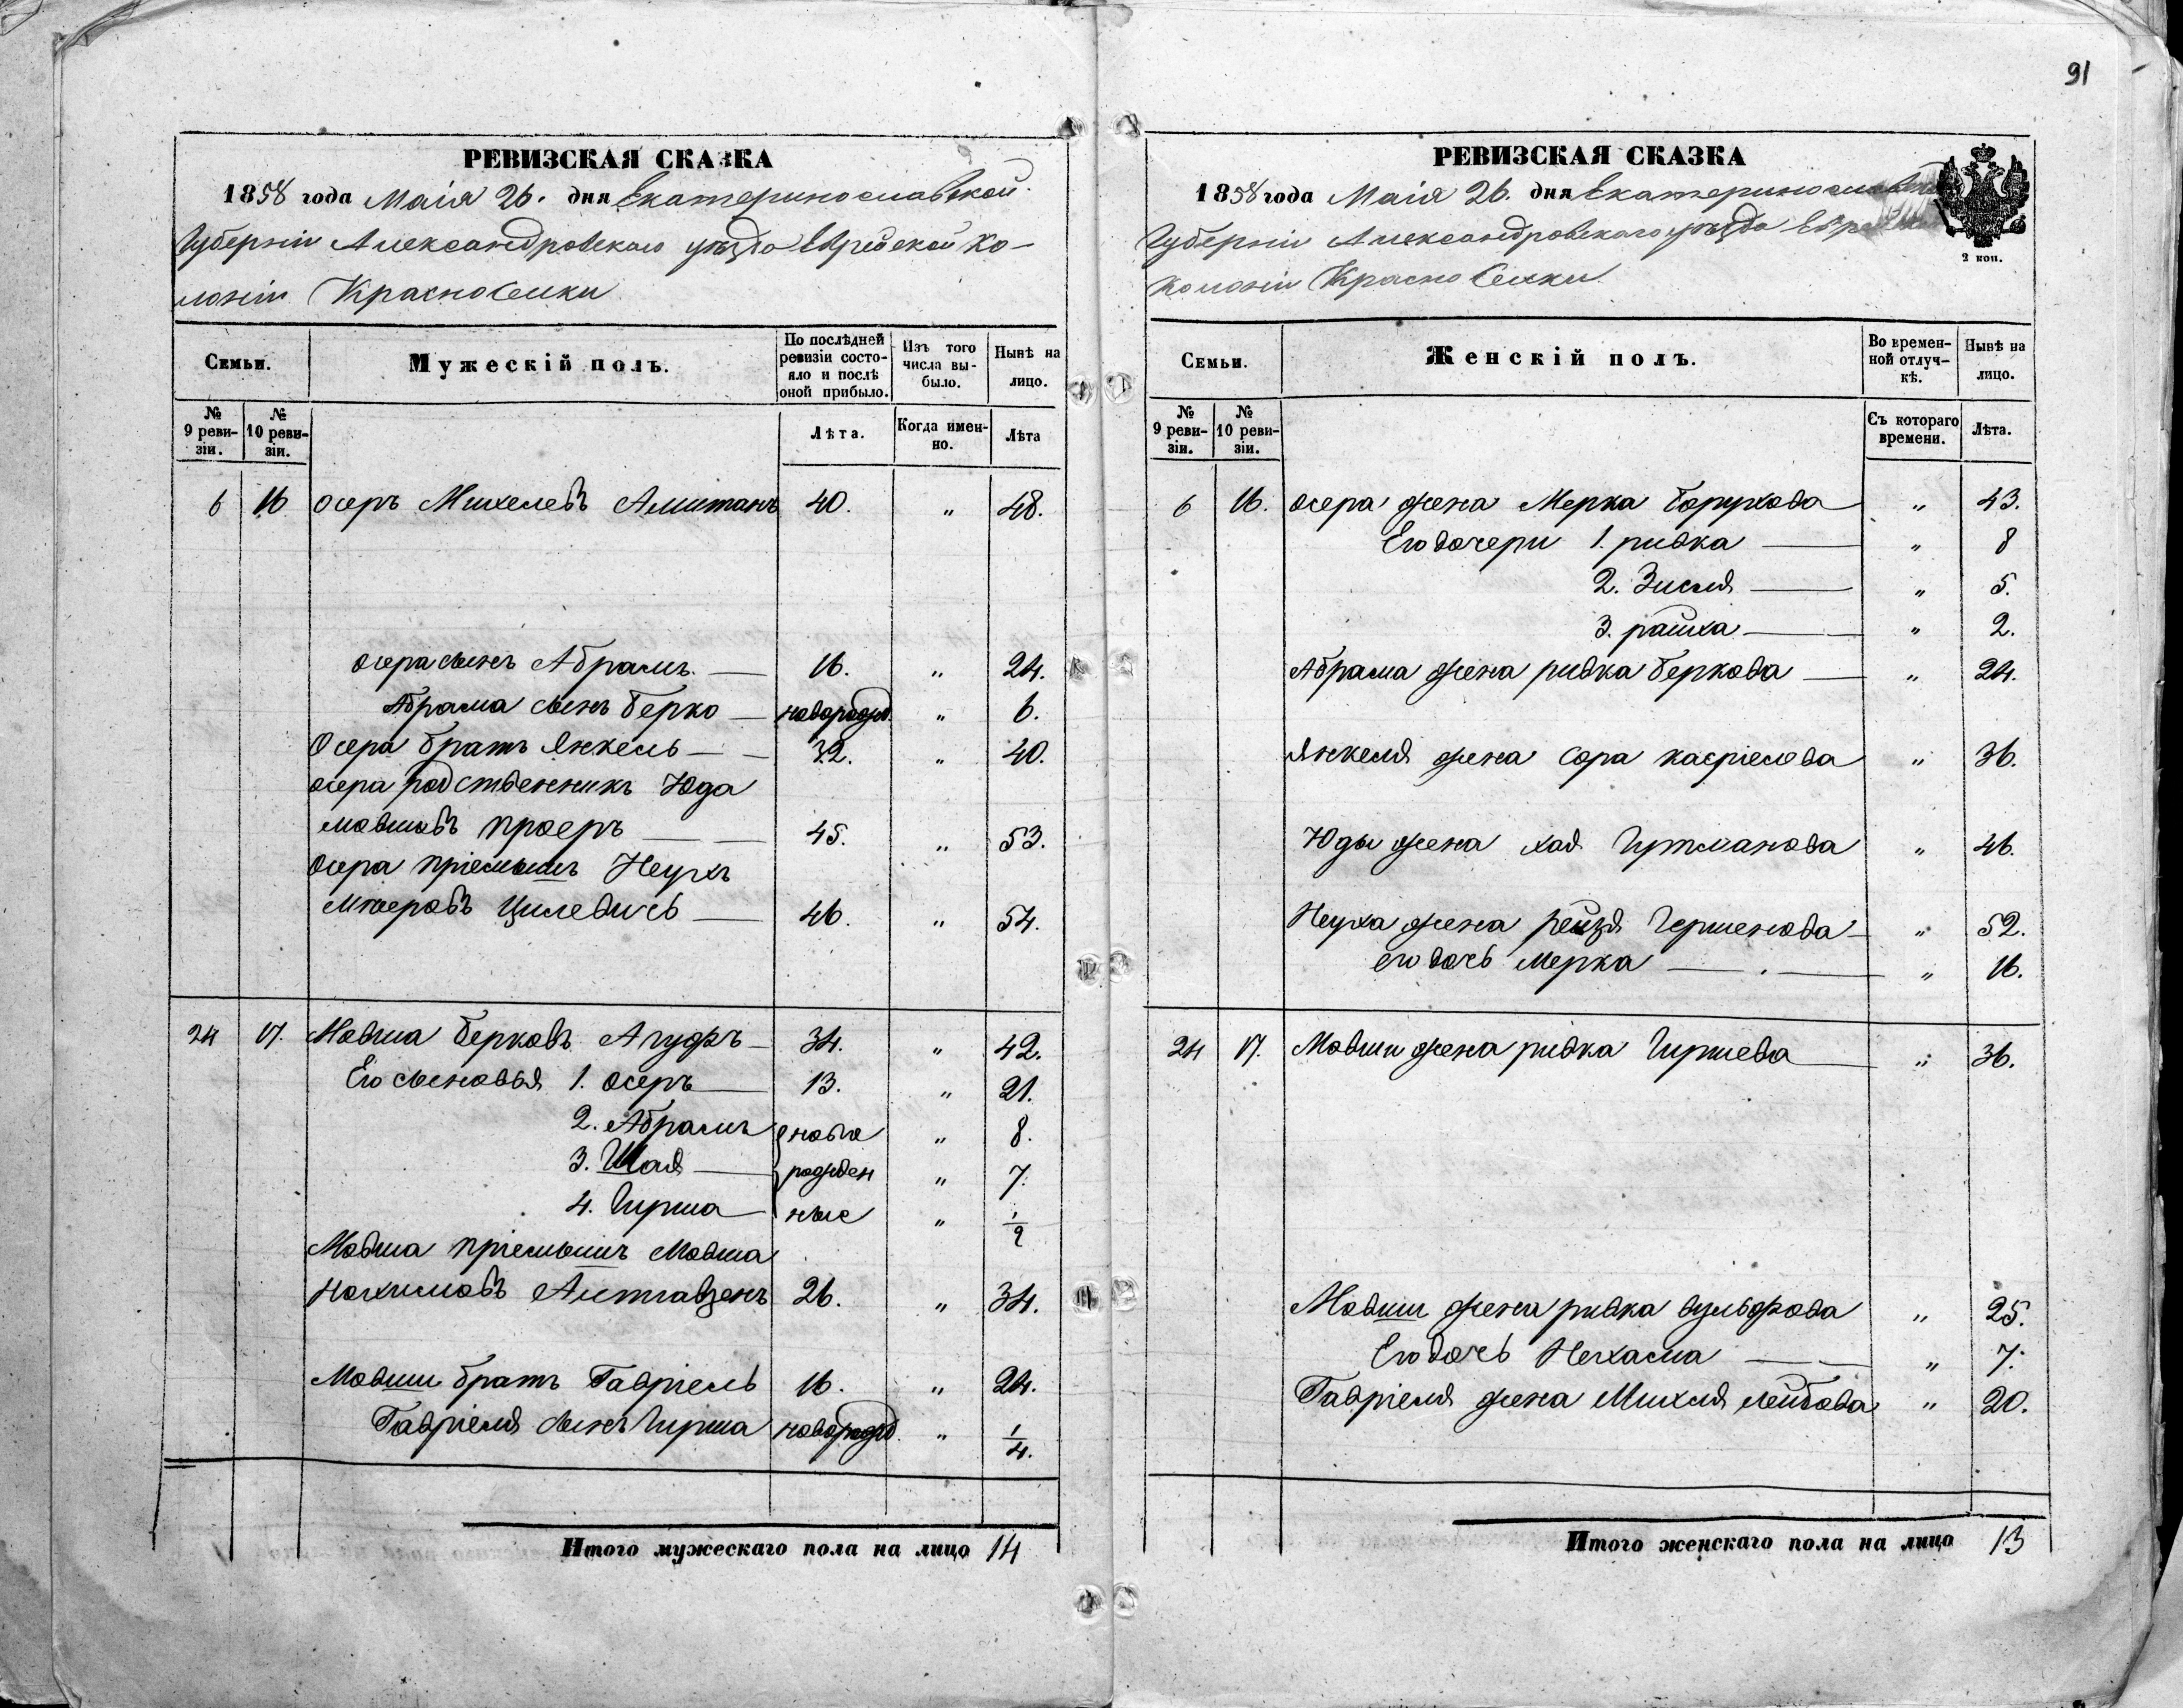 91
РЕВИЗСКАЯ СКАЗКА
1858 года Маія 26. дня Екатеринославской
Губерніи Александровскаго уѣзда Еврейской Ко-
лоніи Красноселки
Семьи. Мужескій полъ. По послѣдней ревизіи состояло и послѣ оной прибыло. Изъ того числа выбыло. Нынѣ на лицо.
№ 9 ревизіи. № 10 ревизіи. Лѣта. Когда именно. Лѣта
6 16 Осеръ Михелевъ Алитанъ 40. " 48.
Осера сынъ Абрамъ — 16. " 24.
Абрама сынъ Берко — новорожд. " 6.
Осера братъ Янкель — 32. " 40.
Осера родственникъ Юда
Мовшовъ Проеръ — 45. " 53.
Осера пріемышъ Неухъ
Цилевичъ — 46. " 54.
24 17. Мовша Берковъ — 34. " 42.
Его сыновья 1. Осеръ — 13. " 21.
2. Абрамъ ново " 8.
3. Шая — рожден " 7.
4. Гирша — ные " 1/2
Мовша пріемышъ Мовша
26. " 34.
Мовши братъ Гавріель 16. " 24.
Гавріеля сынъ Гирша новорожд. " 1/4.
Итого мужескаго пола на лицо 14
РЕВИЗСКАЯ СКАЗКА
1858 года Маія 26. дня Екатеринославской
Губерніи Александровскаго уѣзда Еврейской
Колоніи Красноселки
2 коп.
Семьи. Женскій полъ. Во временной отлучкѣ. Нынѣ на лицо.
№ 9 ревизіи. № 10 ревизіи. Съ котораго времени. Лѣта.
6 16. Осера жена Мерка Борухова — " 43.
Его дочери 1. Ривка — " 8
2. Зисля — " 5.
3. Рашка — " 2.
Абрама жена Ривка Беркова — " 24.
Янкеля жена Сора Касріелова " 36.
Юды жена Хая Гутманова " 46.
Неуха жена Рейзя Гершенова — " 52.
его дочь Мерка — " 16.
24 17. Мовши жена Ривка Гиршева — " 36.
Мовши жена Ривка Вульфова " 25.
Его дочь Нехама — " 7.
Гавріеля жена Михля Лейбова " 20.
Итого женскаго пола на лицо 13